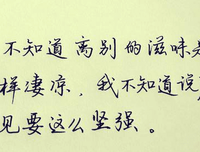 不知道离别的滋味是
样凄凉，我不知道说
见要这么坚强。